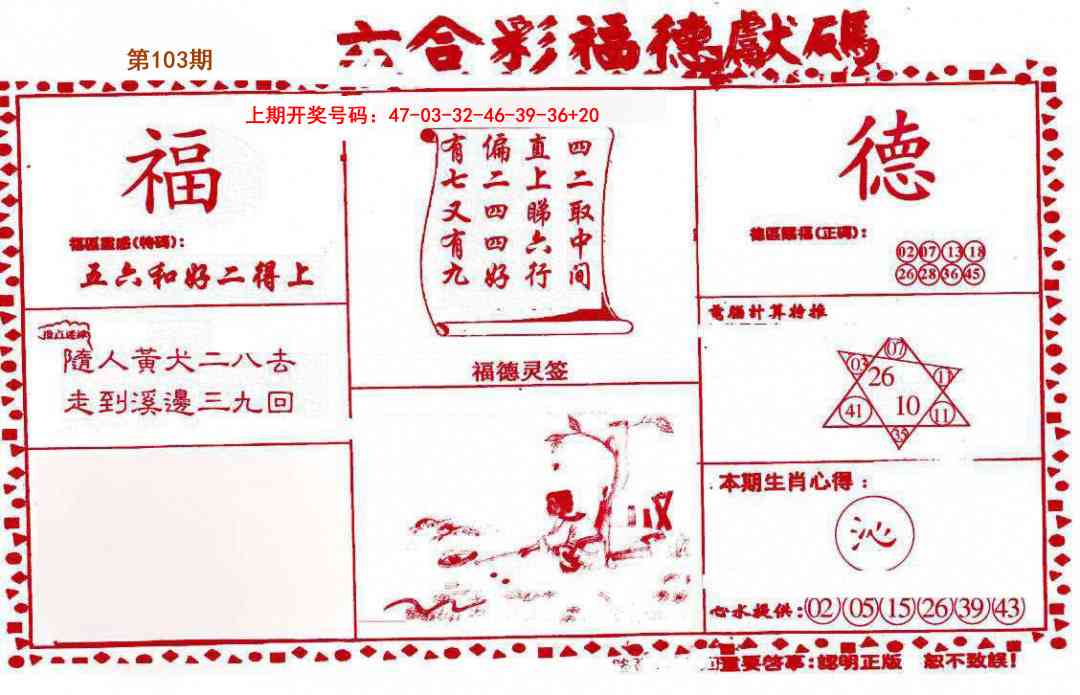 六合彩福德獻碼
第103期
上期开奖号码：47-03-32-46-39-36+20
福
福區靈感(特碼)：
五六和好二得上
隨人黃犬二八去
走到溪邊三九回
四二取中间
直上睇六行
偏二四四好
有七又有九
福德灵签
德
德區賜福(正碼)：
02 07 13 18
26 28 36 45
電腦計算特推
07
03 26 11
41 10 11
35
本期生肖心得：
沁
心水提供：(02)(05)(15)(26)(39)(43)
重要啓事：認明正版 恕不致誤！